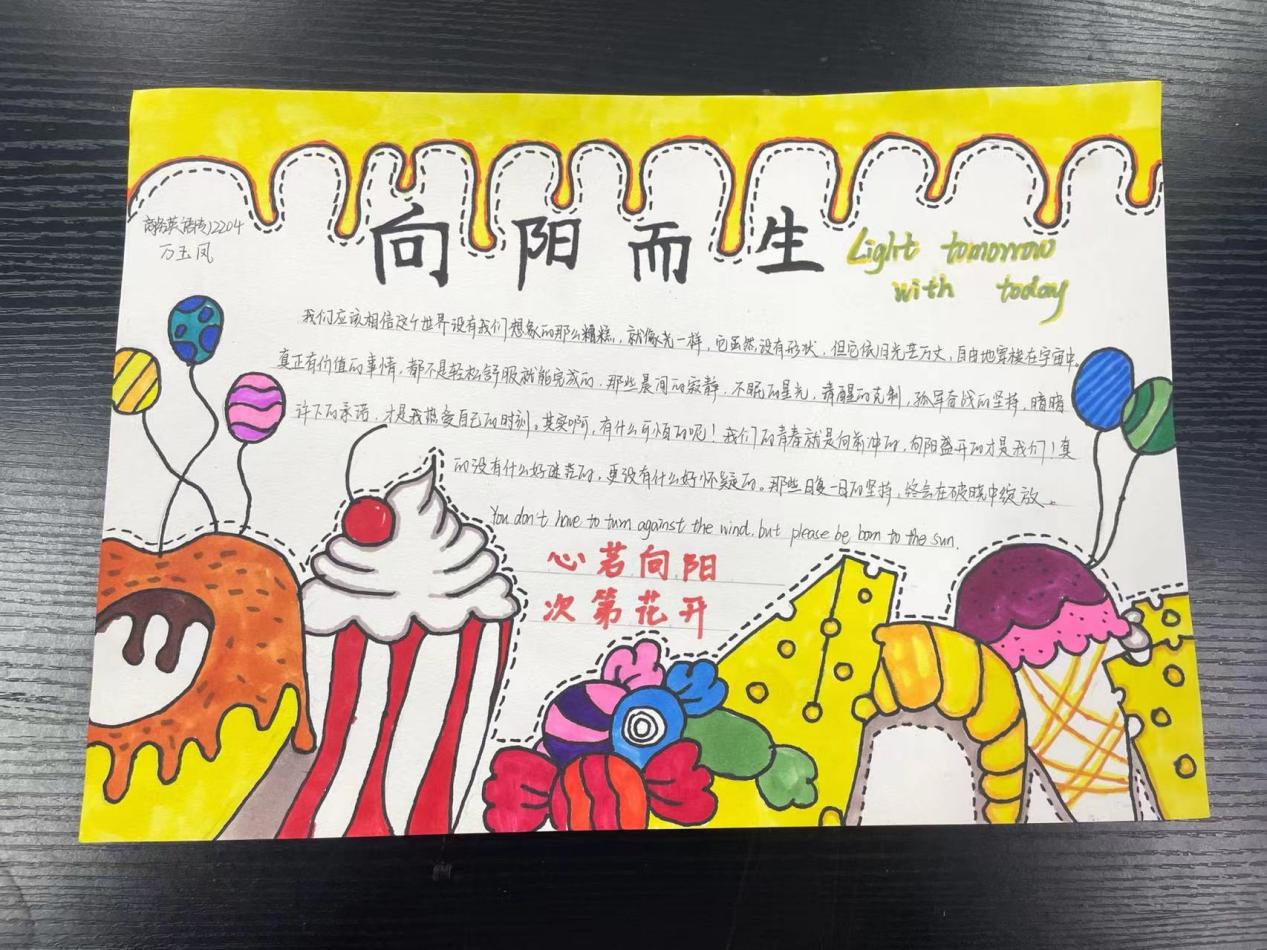 商务英语(专)2204
万玉凤
向阳而生
Light tomorrow
with today
我们应该相信这个世界没有我们想象的那么糟糕，就像光一样，它虽然没有形状，但它依旧光芒万丈，自由地穿梭在宇宙中。
真正有价值的事情，都不是轻松舒服就能完成的，那些晨间的寂静，不眠的星光，清醒的克制，孤军奋战的坚持，暗暗
许下的承诺，才是我热爱自己的时刻。其实啊，有什么可烦的呢！我们的青春就是向前冲的，向阳盛开的才是我们！真
的没有什么好迷茫的，更没有什么好怀疑的。那些日复一日的坚持，终会在破晓中绽放。
You don't have to turn against the wind, but please be born to the sun.
心若向阳
次第花开